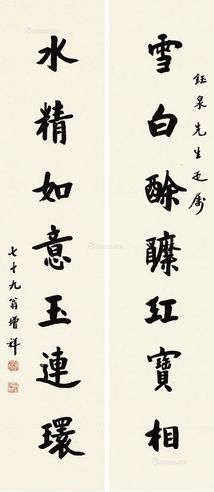 鈺泉先生疋屬
雪白酴醾紅寶相
水精如意玉連環
七十九翁增祥